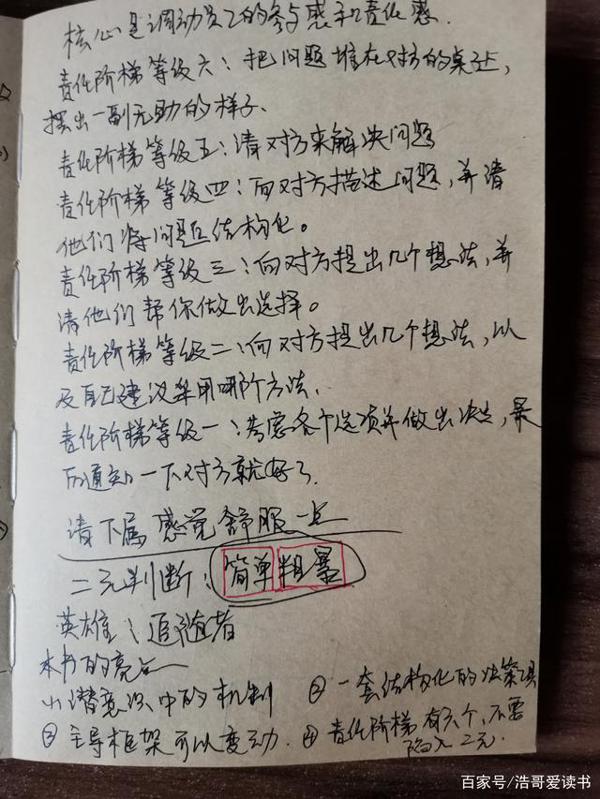 核心是调动员工的参与感和责任感.
责任阶梯等级六：把问题堆在对方的桌子上，
摆出一副无助的样子.
责任阶梯等级五：请对方来解决问题
责任阶梯等级四：向对方描述问题，并请
他们将问题结构化。
责任阶梯等级三：向对方提出几个想法，并
请他们帮你做出选择。
责任阶梯等级二：向对方提出几个想法，以
及自己建议采用哪个方法.
责任阶梯等级一：考虑各个选项并做出决定，最
后通知一下对方就好了
请下属感觉舒服一点
二元判断：简单粗暴
英雄：追随者
本书的亮点
(1)潜意识中的机制 ② 一套结构化的决策工具
③ 主导框架可以变动. ④ 责任阶梯有六个，不要
陷入二元.
百家号/浩哥爱读书